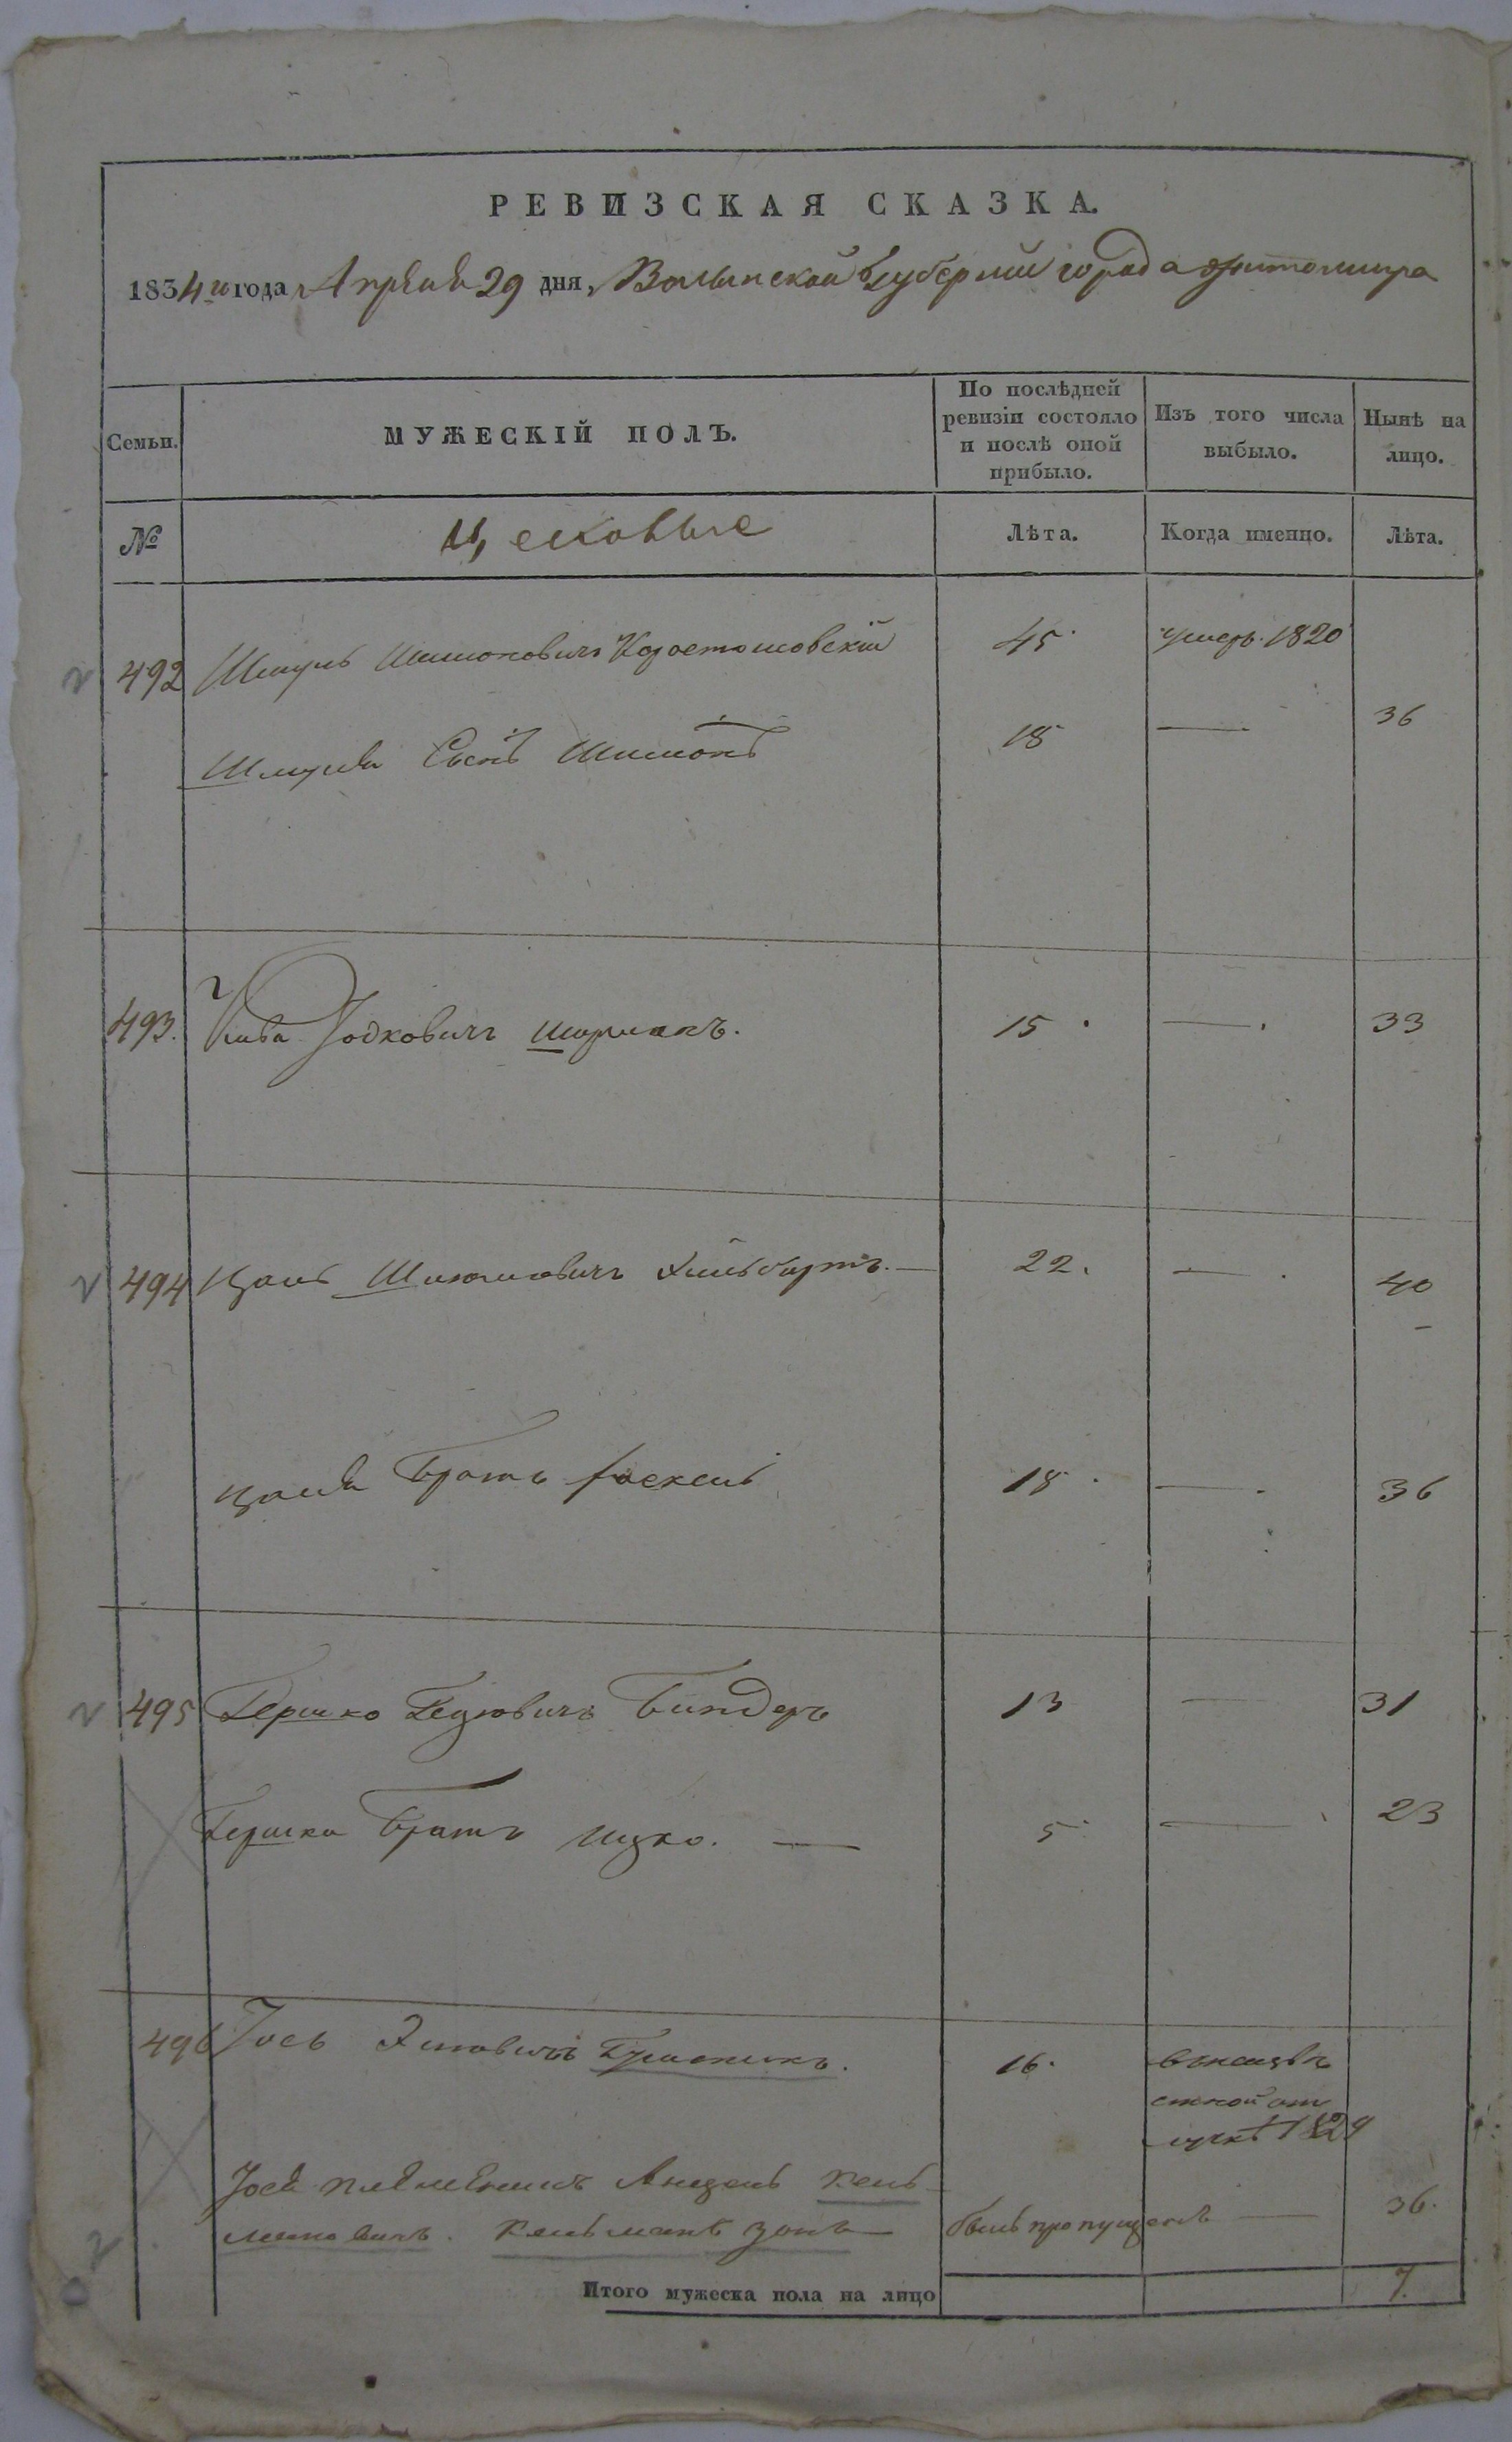 РЕВИЗСКАЯ СКАЗКА.
1834го года Апреля 29 дня, Волынской Губернии города Житомира
Семьи.
МУЖЕСКІЙ ПОЛЪ.
По послѣдней ревизіи состояло и послѣ оной прибыло.
Изъ того числа выбыло.
Нынѣ на лицо.
№
Цеховые
Лѣта.
Когда именно.
Лѣта.
492 Шмуль Шимоновичъ Коростошовскій 45 умеръ 1820
Шмуля Сынъ Шимонъ 18 — 36
493. Кива Иодковичъ Шурманъ. 15 — 33
494 Цаль Шлиомовичъ 22. — 40
Цаля братъ Хаскель 18 — 36
495 Гершко Гецовичъ Биндеръ 13 — 31
Гершка братъ Ицко. — 5 — 23
496 Иось 16.
1829
Иося племенникъ Анцель Кель
мановичъ. Кельманъ зонъ — былъ пропущенъ — 36.
Итого мужеска пола на лицо 7.